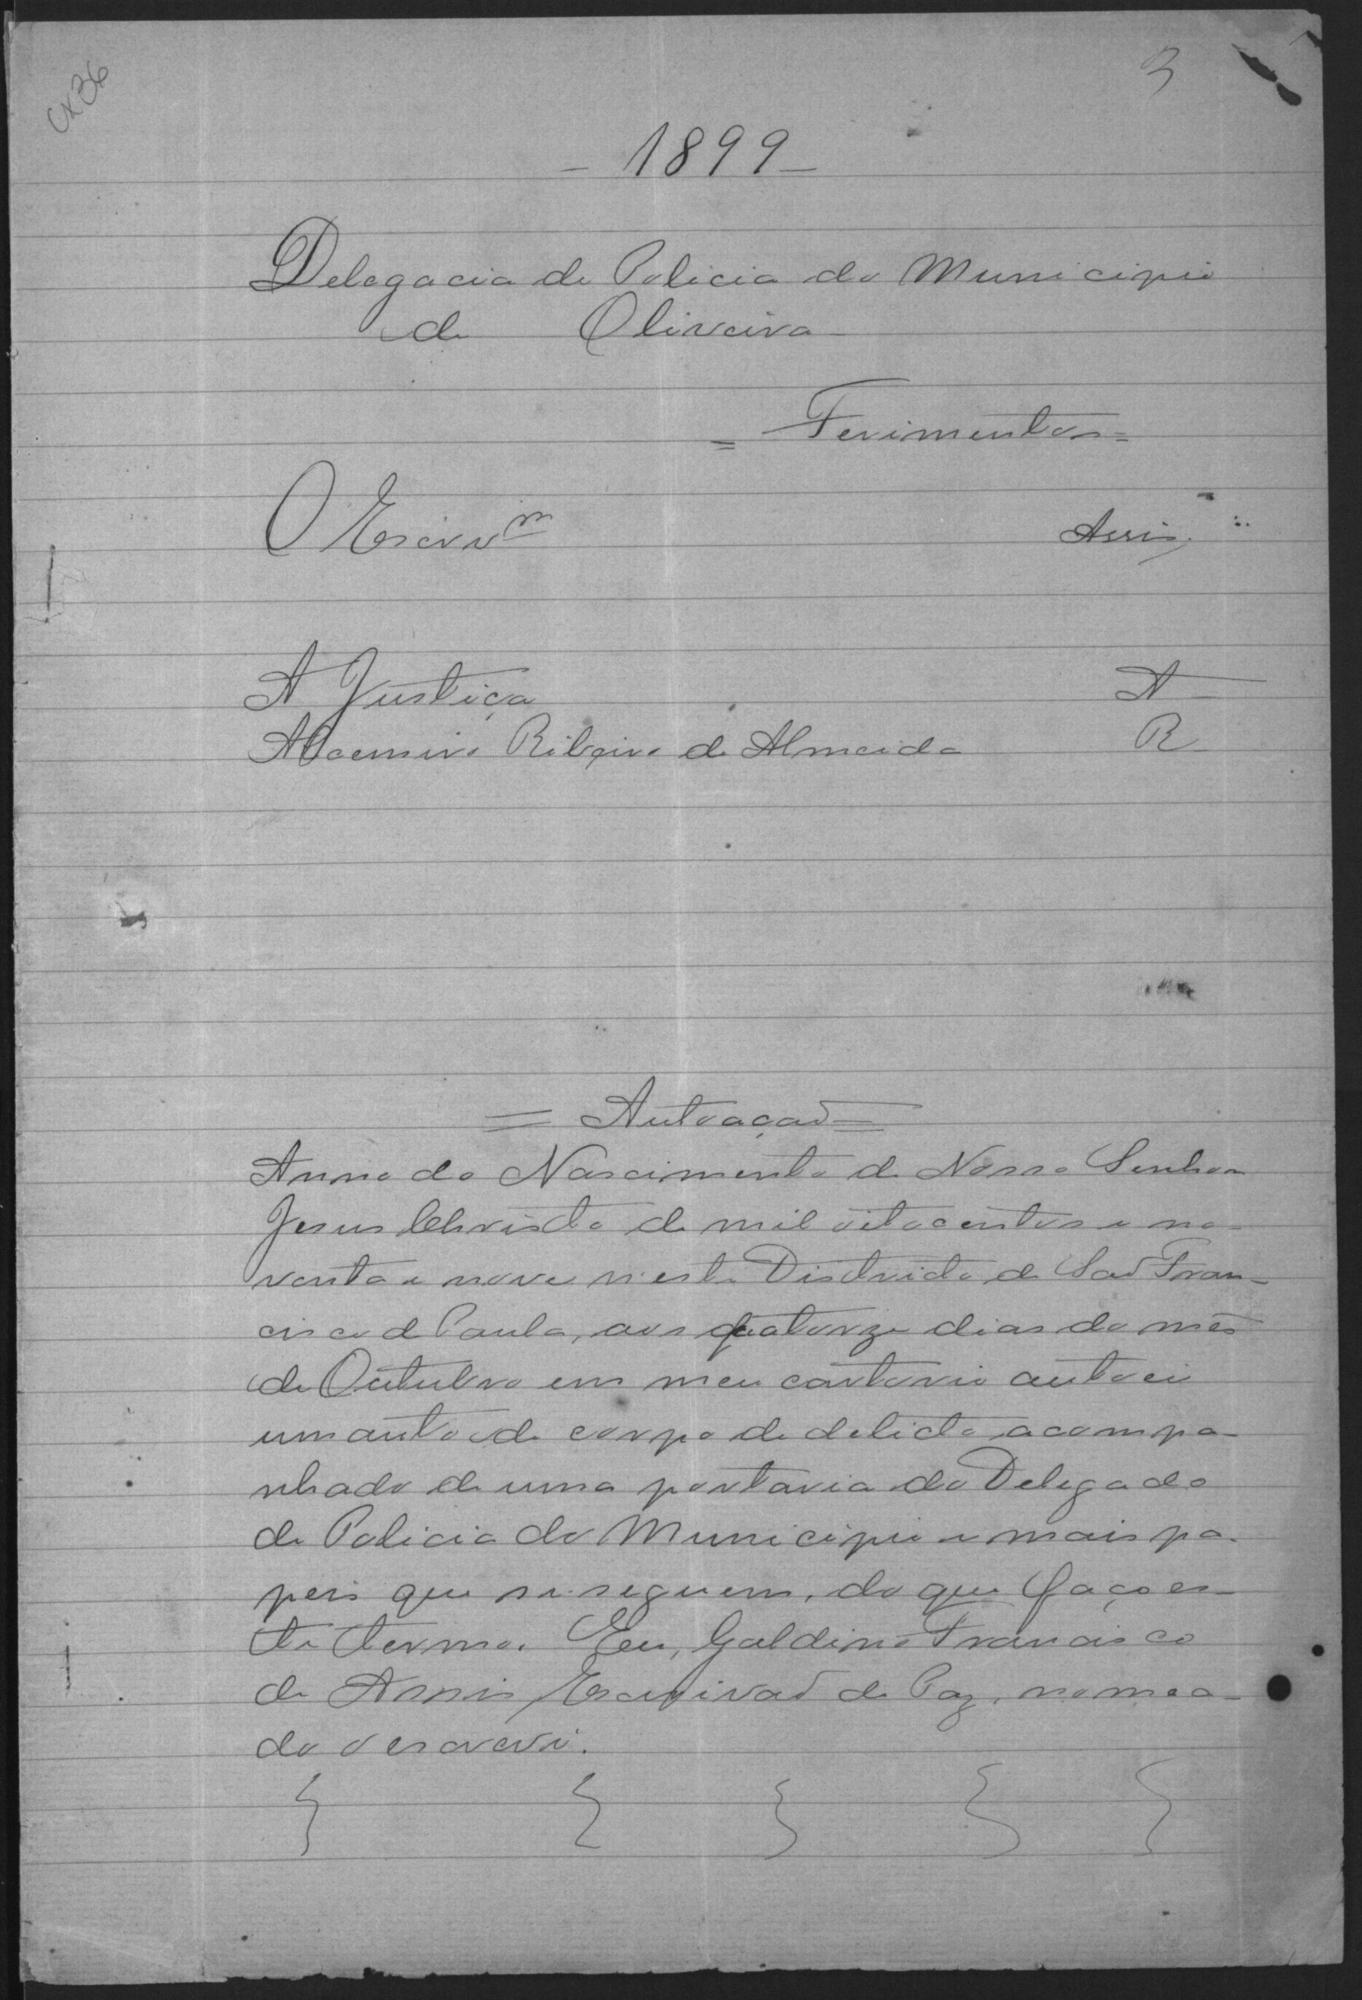 Cx 36
3
- 1899 -
Delegacia de Policia do Municipio
de Oliveira
= Ferimentos =
O Escrivm Assis
A Justiça A
Ribeiro de Almeida R
= Autoaçaõ =
Anno do Nascimento de Nosso Senhor
Jesus Christo de mil oitocentos e no-
venta e nove n'este Districto de Saõ Fran-
cisco de Paula, aos quatorze dias do mes
de Outubro em meu cartorio autoei
um auto de corpo de delicto acompa-
nhado de uma portaria do Delegado
de Policia do Municipio e mais pa-
peis que se seguem, do que faço es-
te termo. Eu, Galdino Francisco
de Assis Escrivaõ de Paz, nomea-
do o escrevi.